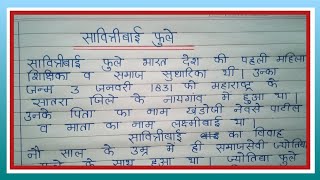 सावित्रीबाई फुले
सावित्रीबाई फुले भारत देश की पहली महिला
शिक्षिका व समाज सुधारिका थीं। उनका
जन्म 3 जनवरी 1831 को महाराष्ट्र के
सातरा जिले के नायगाँव में हुआ था।
उनके पिता का नाम खंडोजी नेवसे पाटील
व माता का नाम लक्ष्मीबाई था।
सावित्रीबाई का विवाह
नौ साल के उम्र मे ही समाजसेवी ज्योतिबा
फुले के साथ हुआ था। ज्योतिबा फुले